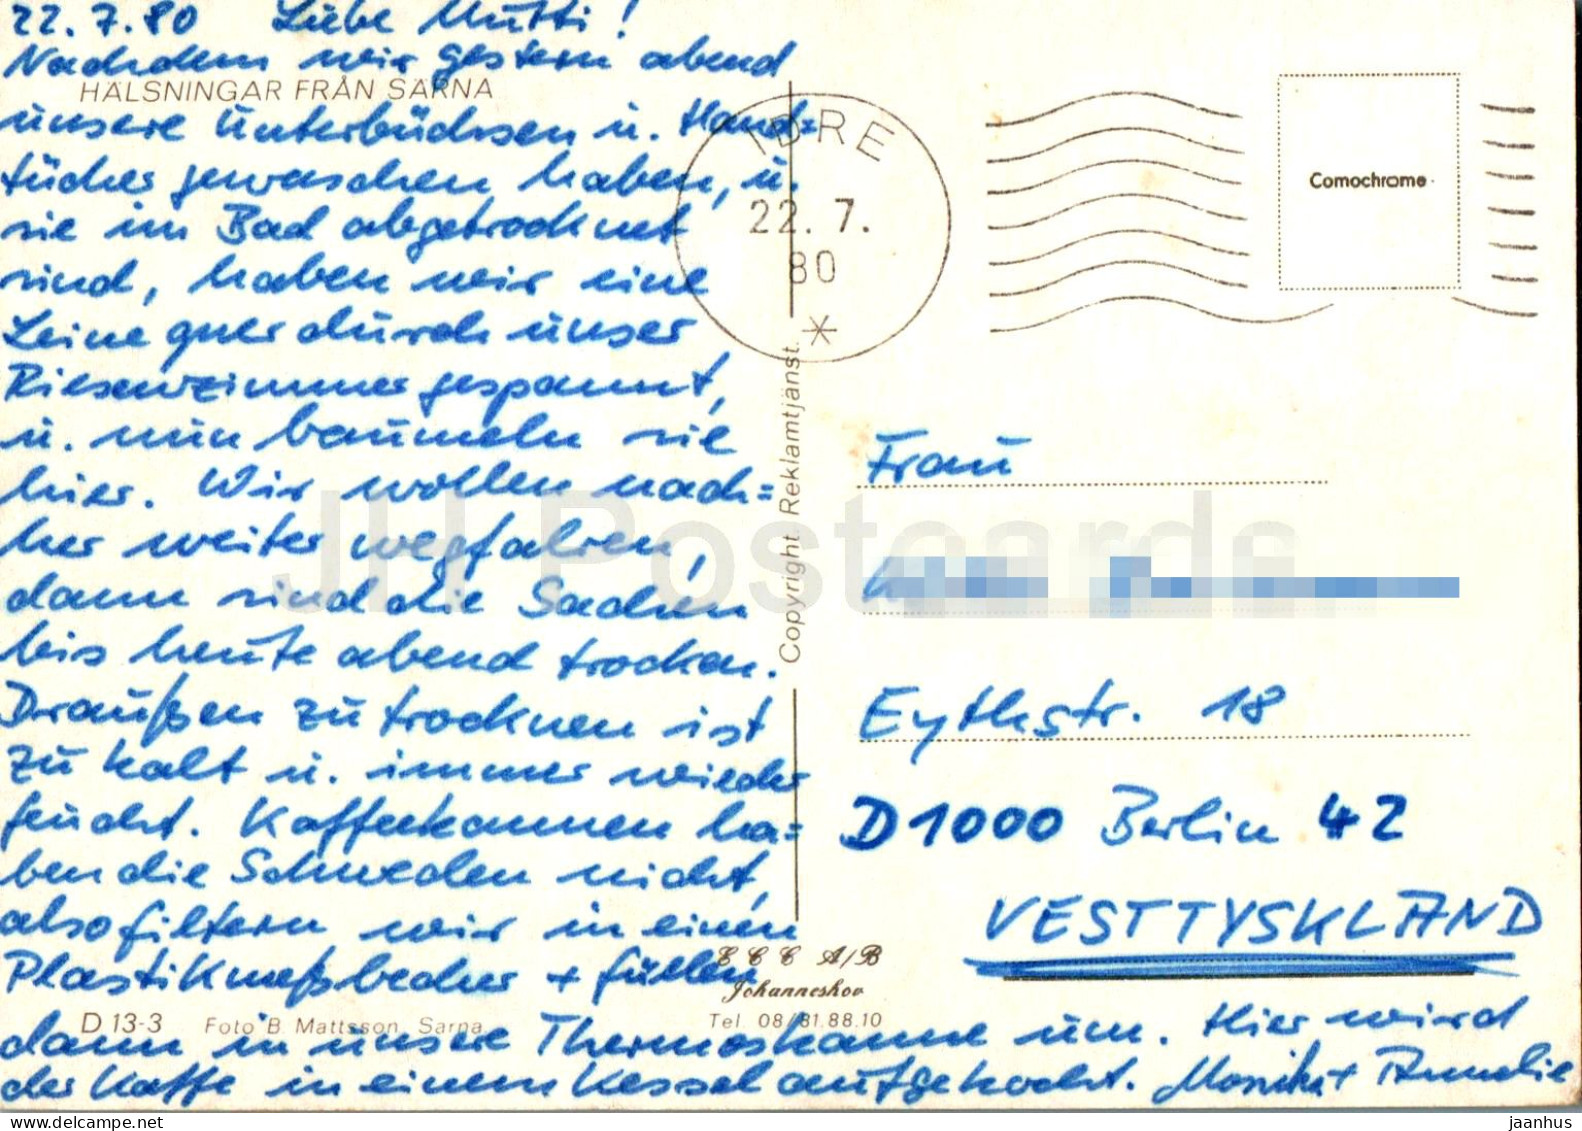 22.7.80 Liebe Mutti!
Nachdem wir gestern abend
HÄLSNINGAR FRÅN SÄRNA
unsere Unterbüchsen u. Hand=
tücher gewaschen haben, u.
sie im Bad abgetrocknet
sind, haben wir eine
Leine quer durch unser
Riesenzimmer gespannt,
u. nun baumeln sie
hier. Wir wollen nach=
her weiter wegfahren,
dann sind die Sachen
bis heute abend trocken.
Draußen zu trocknen ist
zu kalt u. immer wieder
feucht. Kaffeekannen ha=
ben die Schweden nicht,
also filtern wir in einen
Plastikmeßbecher + füllen
D 13-3 Foto B. Mattsson, Särna
dann in unsere Thermoskanne um. Hier wird
der Kaffe in einem Kessel aufgekocht. Monika + Amelie
IDRE
22.7.
80
Comochrome
Copyright. Reklamtjänst.
C C C A/B
Johanneshov
Tel 08/81.88.10
Frau
Eythstr. 18
D 1000 Berlin 42
VESTTYSKLAND
JH Postcards
delcampe.net
jaanhus